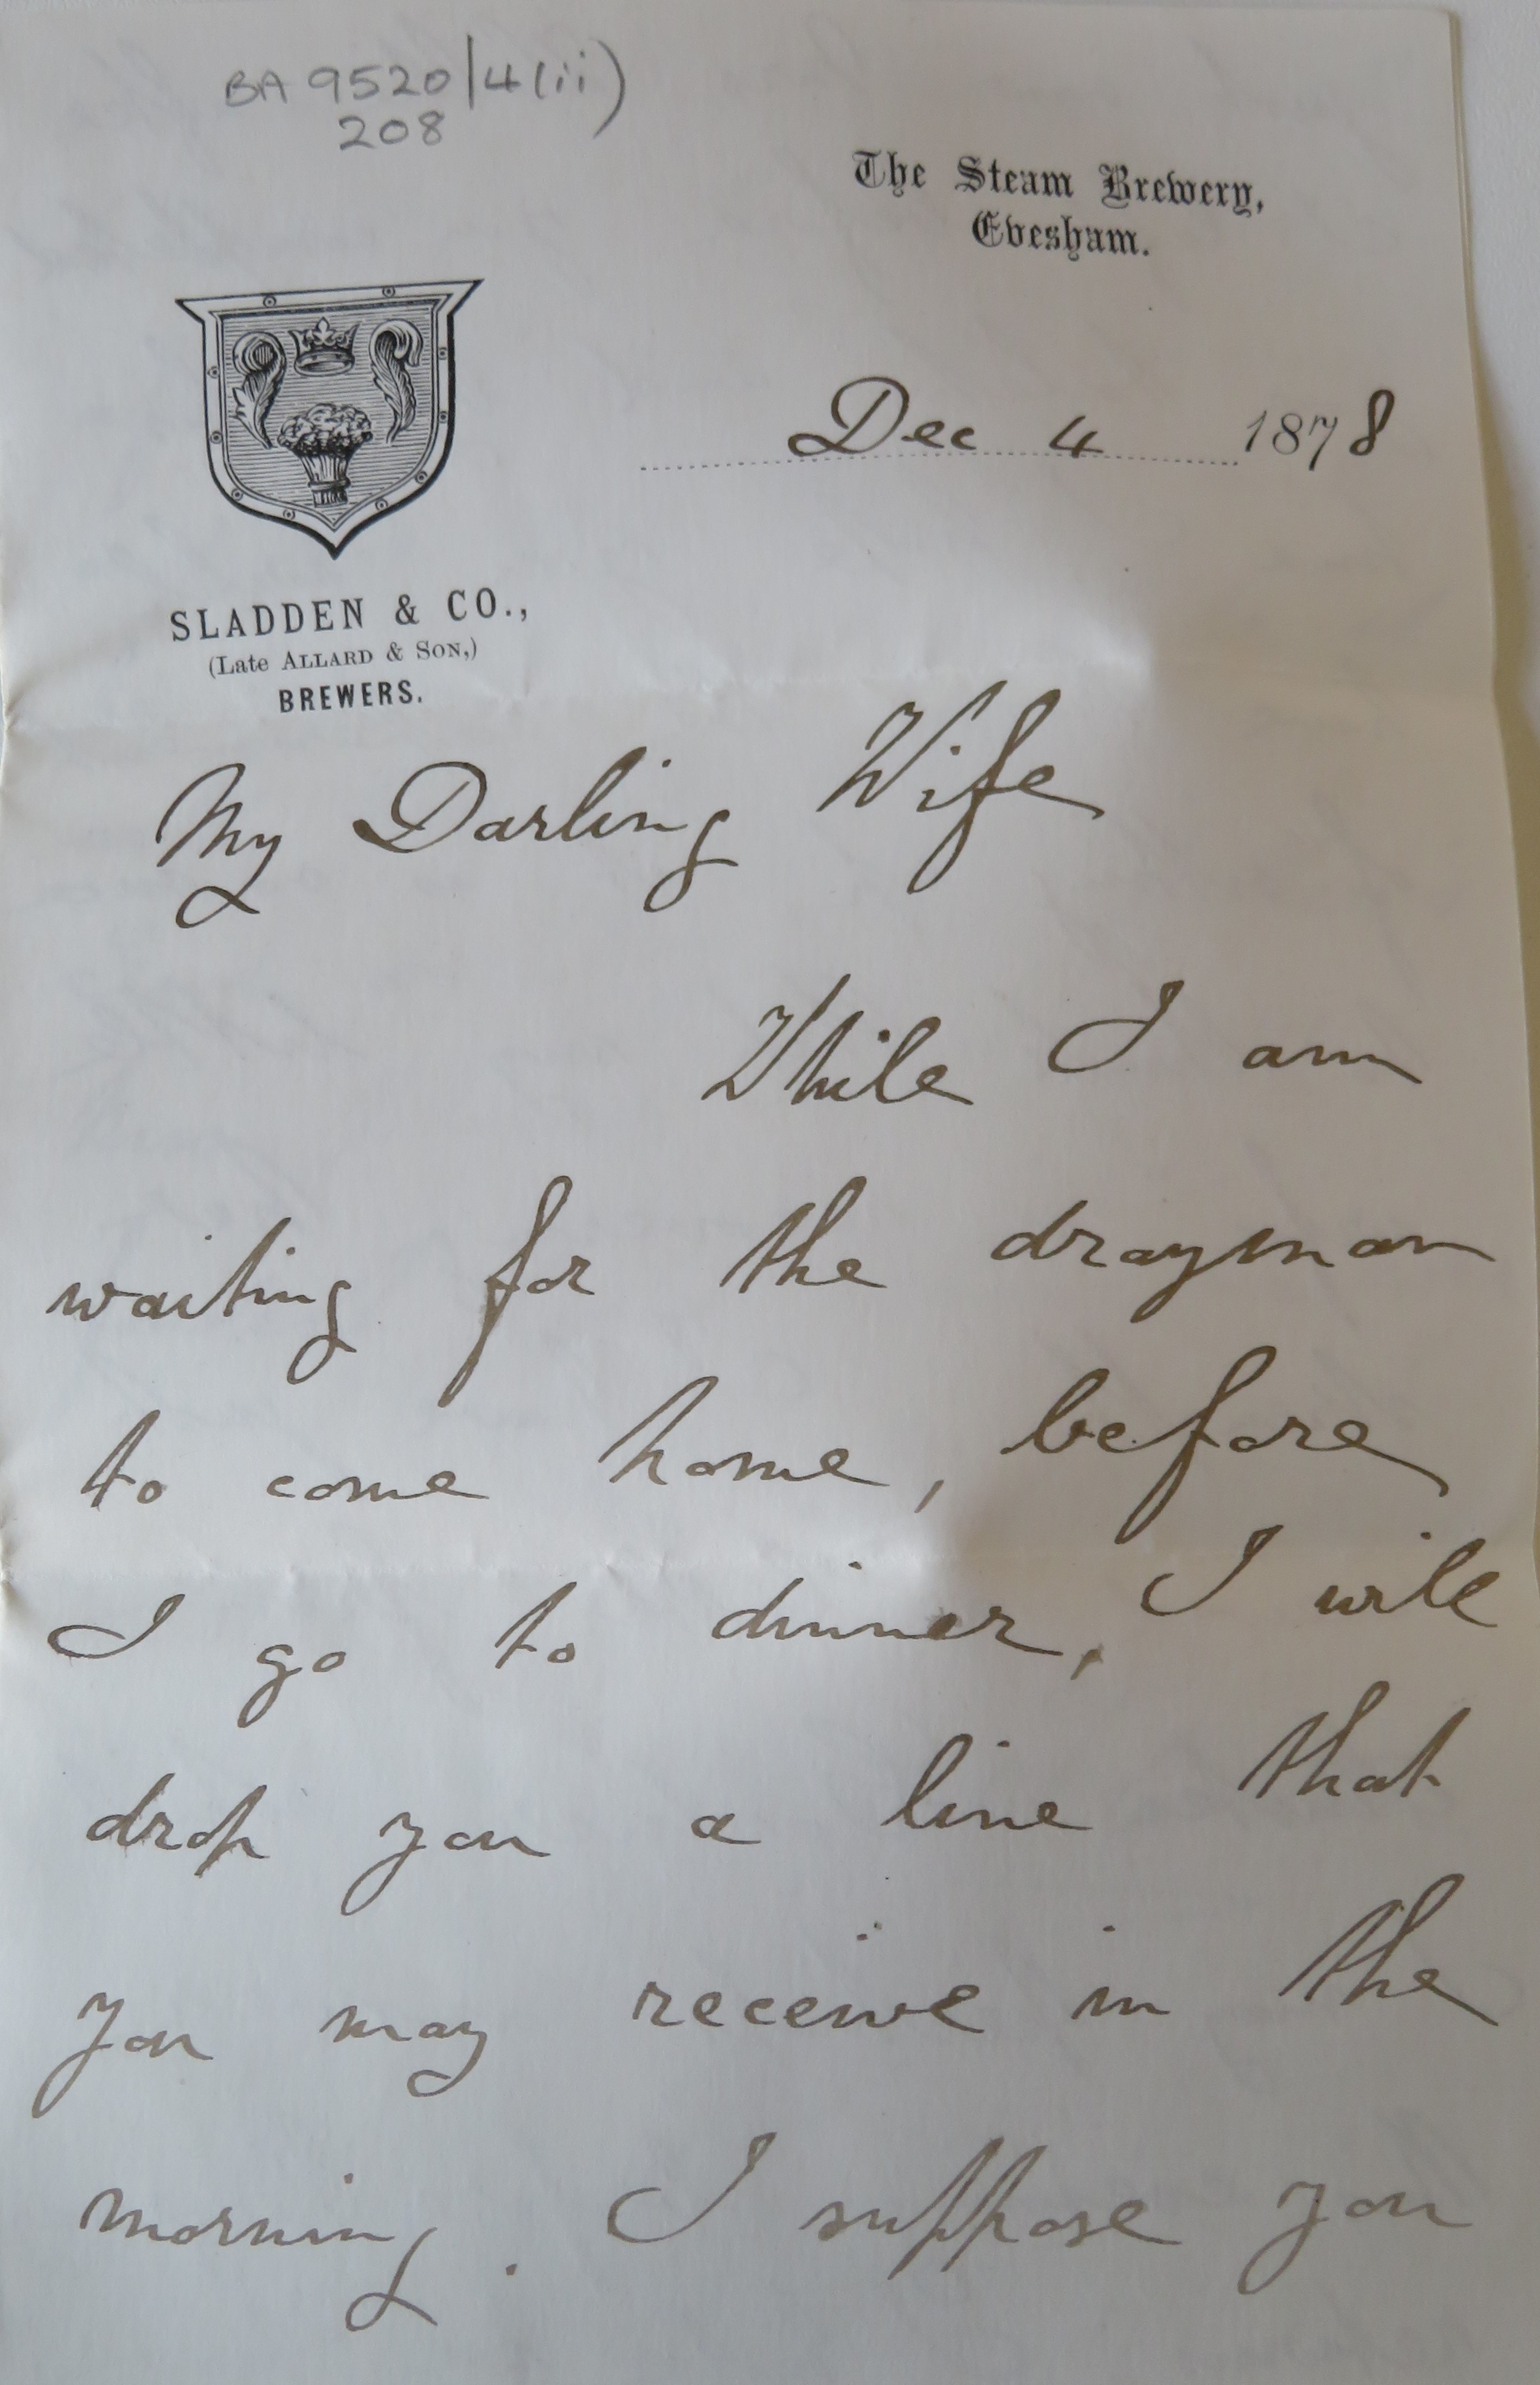 BA 9520/4(ii)
208
The Steam Brewery,
Evesham.
Dec 4 1878
SLADDEN & CO.,
(Late ALLARD & SON,)
BREWERS.
My Darling Wife
While I am
waiting for the drayman
to come home, before
I go to dinner, I will
drop you a line that
you may receive in the
morning. I suppose you